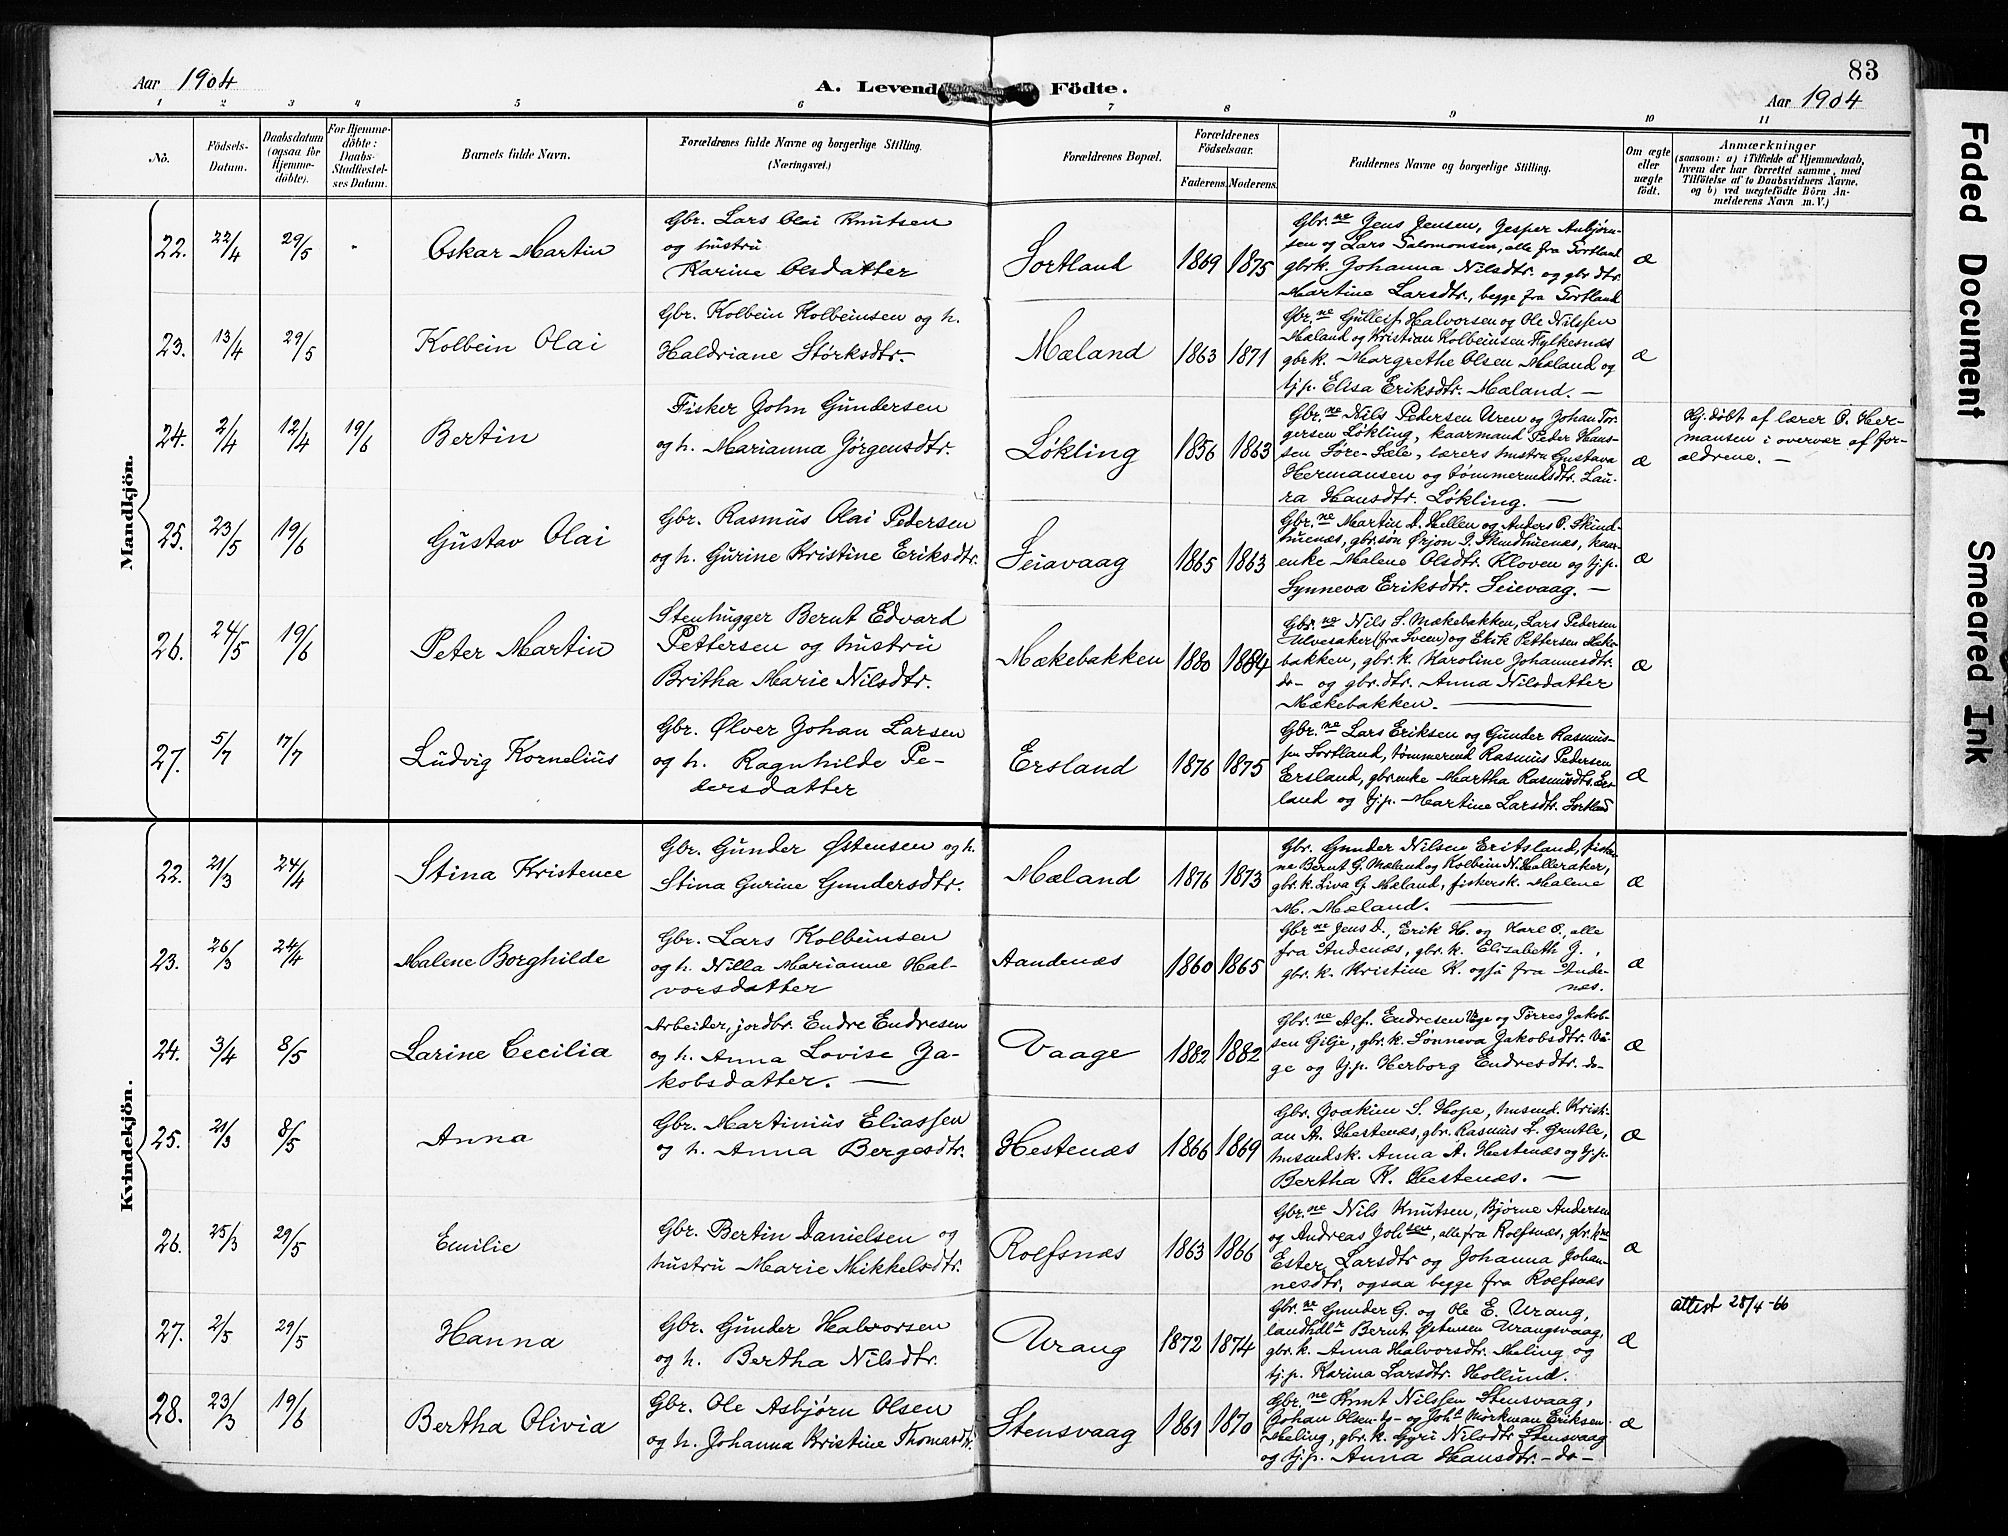 Aar 1904
A. Levende Födte.
83
Aar 1904
1 2 3 4 5 6 7 8 9 10 11
No.
Födsels-Datum.
Daabsdatum (ogsaa for Hjemmedöbte).
For Hjemmedöbte: Daabs-Stadfæstelses Datum.
Barnets fulde Navn.
Forældrenes fulde Navne og borgerlige Stilling.
(Næringsvei.)
Forældrenes Bopæl.
Forældrenes Födselsaar.
Faderens. Moderens.
Faddernes Navne og borgerlige Stilling.
Om ægte eller uægte födt.
Anmærkninger
(saasom: a) i Tilfælde af Hjemmedaab,
hvem der har forrettet samme, med
Tilföielse af to Daabsvidners Navne,
og b) ved uægtefödte Börn Anmelderens Navn m. V.)
Mandkjön.
22. 22/4 29/5 Oskar Martin
Gbr. Lars Olai Knutsen
og hustru
Karine Olsdatter
Sortland 1869 1875
Gbr.ne Jens Jensen, Jesper Asbjørn-
sen og Lars Salomonsen, alle fra Sortland
gbrk. Johanna Nilsdtr. og gbr dtr.
Martine Larsdtr., begge fra Sortland
æ
23. 13/4 29/5 Kolbein Olai
Gbr. Kolbein Kolbeinsen og h.
Haldriane Størksdtr.
Mæland 1863 1871
Gbr.ne Gulleif Halvorsen og Ole Nilssen
Mæland og Kristian Kolbeinsen Kylkesnæs
gbrk. Margrethe Olsen Mæland og
tj.p. Elisa Eriksdtr. Mæland. —
æ
24. 2/4 12/4 19/6 Bertin
Fisker John Gundersen
og h. Marianna Jörgensdtr.
Løkling 1856 1863
Gbr.ne Nils Pedersen Uren og Johan Tor-
gersen Løkling, kaarmand Peder Hans-
sen Søre-Sæle, lærers hustru Gustava
Hermansen og tømmermdsdtr. Lau-
ra Hansdtr. Løkling. —
æ
Hj.døbt af lærer P. Her-
mansen i overvær af for-
ældrene. —
25. 23/5 19/6 Gustav Olai
Gbr. Rasmus Olai Pedersen
og h. Gurine Kristine Eriksdtr.
Seiavaag 1865 1863
Gbr.ne Martin D. Hellen og Anders P. Skind-
huenæs, gbr.søn Ørjon P. Skindhuenæs, kaar-
enke Malene Olsdtr. Kloven og tj.p.
Synneva Eriksdtr. Seievaag. —
æ
26. 24/5 19/6 Peter Martin
Stenhugger Bernt Edvard
Pettersen og hustru
Britha Marie Nilsdtr.
Mækebakken 1880 1884
Gbr.ne Nils S. Mækebakken, Lars Pedersen
Ulvesaker (fra Sveen) og Erik Pettersen Mæke-
bakken, gbr.k. Karoline Johannesdtr.
do- og gbr.dtr. Anna Nilsdatter
Mækebakken. —
æ
27. 5/7 17/7 Ludvig Kornelius
Gbr. Ølver Johan Larsen
og h. Ragnhilde Pe-
dersdatter
Ersland 1876 1875
Gbr.ne Lars Eriksen og Gunder Rasmus-
sen Sortland, tømmermd Rasmus Pedersen
Ersland, gbr.enke Martha Rasmusdtr. Ers-
land og tj.p. Martine Larsdtr. Sortland
æ
Kvindekjön.
22. 21/3 24/4 Stina Kristence
Gbr. Gunder Østensen og h.
Stina Gurine Gundersdtr.
Mæland 1876 1873
Gbr. Gunder Nilsen Eritsland, fisker-
ne Bernt G. Mæland og Kolbein N. Halleraker,
gbr.k. Liva G. Mæland, fiskersk. Malene
M. Mæland. —
æ
23. 26/3 24/4 Malene Borghilde
Gbr. Lars Kolbeinsen
og h. Nilla Marianne Hal-
vorsdatter
Aandenæs 1860 1865
Gbr.ne Jens D., Erik H. og Karl O., alle
fra Andenæs, gbr.k. Elizabeth J.,
gbr.k. Kristine K. også fra Ande-
næs.
æ
24. 3/4 8/5 Larine Cecilia
Arbeider, jordbr. Endre Endresen
og h. Anna Lovise Ja-
kobsdatter. —
Vaage 1882 1882
Gbr.ne Alf. Endresen Våge og Tørres Jakob-
sen Gilje, gbr.k. Sønneva Jakobsdtr. Vå-
ge og tj.p. Herborg Endresdtr. do-
æ
25. 21/3 8/5 Anna
Gbr. Martinius Eliassen
og h. Anna Bergesdtr.
Hestenæs 1866 1869
Gbr. Joakim S. Hope, husmd. Kristi-
an A. Hestenæs, gbr. Rasmus L. Grutle,
husmdsk. Anna A. Hestenæs og tj.p.
Bertha K. Hestenæs. —
æ
26. 25/3 29/5 Emilie
Gbr. Bertin Danielsen og
hustru Marie Mikkelsdtr.
Rolfsnæs 1863 1866
Gbr.ne Nils Knutsen, Bjørne Andersen
og Andreas Johsen, alle fra Rolfsnæs, gbr.kne
Ester Larsdtr og Johanna Johan-
nesdtr., ogsaa begge fra Rolfsnæs
æ
27. 2/5 29/5 Hanna
Gbr. Gunder Halvorsen
og h. Bertha Nilsdtr.
Urang 1872 1874
Gbr.ne Gunder G. og Ole E. Urang,
landhdlr Bernt Østensen Urangsvaag,
gbr.k. Anna Halvorsdtr. Meling og
tj.p. Karina Larsdtr. Hollund.
æ
attest 28/4-66
28. 23/3 19/6 Bertha Olivia
Gbr. Ole Asbjørn Olsen
og h. Johanna Kristine Thomasdtr
Stensvaag 1861 1870
Gbr.ne Knut Nilssen Stensvaag,
Johan Olsen do- og Joht Mørkman Eriksen
Meling, gbr.k. Gyri Nilsdtr Stensvaag
og tj.p. Anna Hansdtr. -do-
æ
Faded Document
Smeared Ink